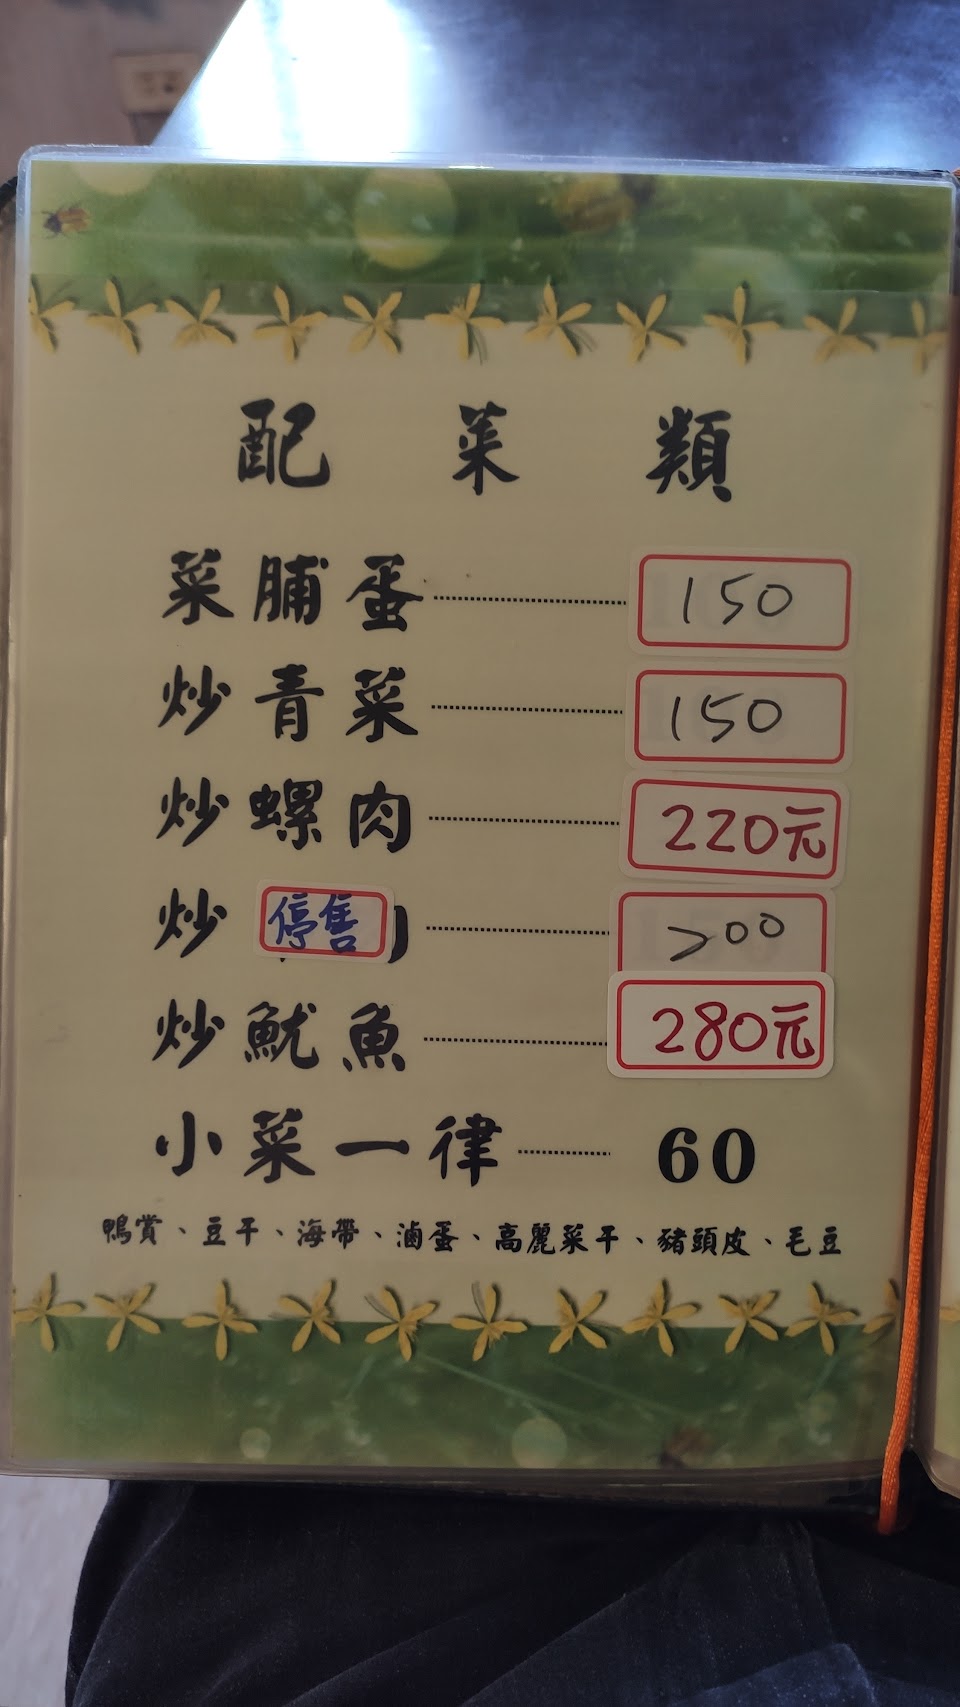 配菜類
菜脯蛋 150
炒青菜 150
炒螺肉 220元
炒 停售 200
炒魷魚 280元
小菜一律 60
鴨賞、豆干、海帶、滷蛋、高麗菜干、豬頭皮、毛豆